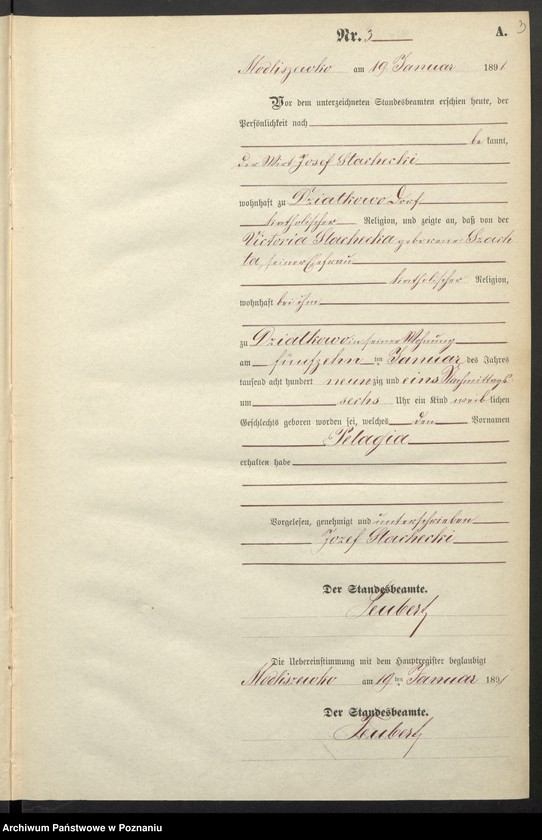 3
Nr. 3 A.
Modliszewko am 19 Januar 1891
Vor dem unterzeichneten Standesbeamten erschien heute, der
Persönlichkeit nach
be kannt,
der Wirt Josef Stachecki
wohnhaft zu Dziatkowo Dorf
katholischer Religion, und zeigte an, daß von der
Victoria Stachecka geborene Szach
ta, seiner Ehefrau
katholischer Religion,
wohnhaft bei ihm
zu Dziatkowo in seiner Wohnung
am fünfzehn ten Januar des Jahres
tausend acht hundert neunzig und eins Nachmittags
um sechs Uhr ein Kind weiblichen
Geschlechts geboren worden sei, welches den Vornamen
Pelagia
erhalten habe
Vorgelesen, genehmigt und unterschrieben
Jozef Stachecki
Der Standesbeamte.
Die Uebereinstimmung mit dem Hauptregister beglaubigt
Modliszewko am 19 ten Januar 1891
Der Standesbeamte.
Archiwum Państwowe w Poznaniu